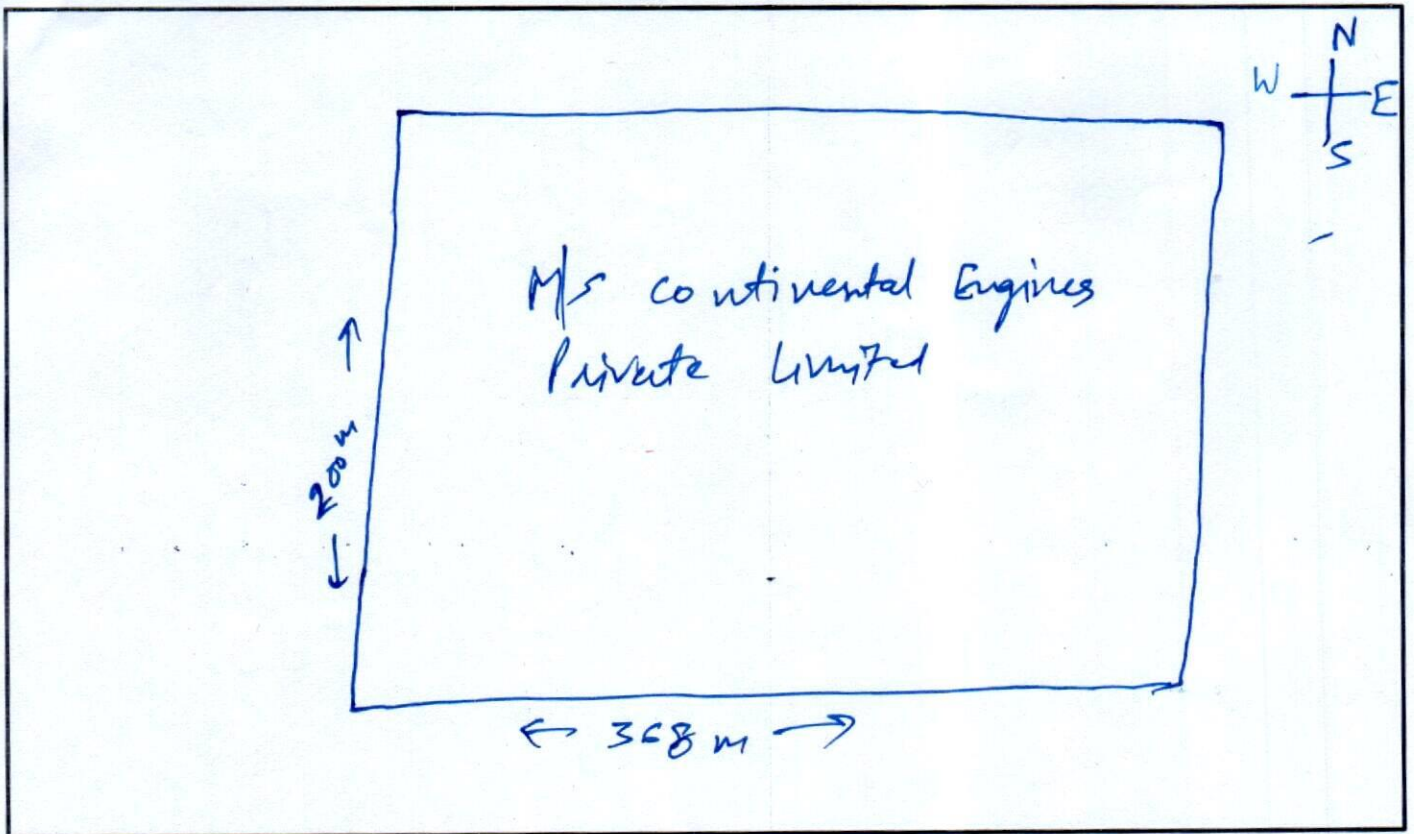 N
W E
S
M/s continental Engines
Private Limited
200 m
368 m